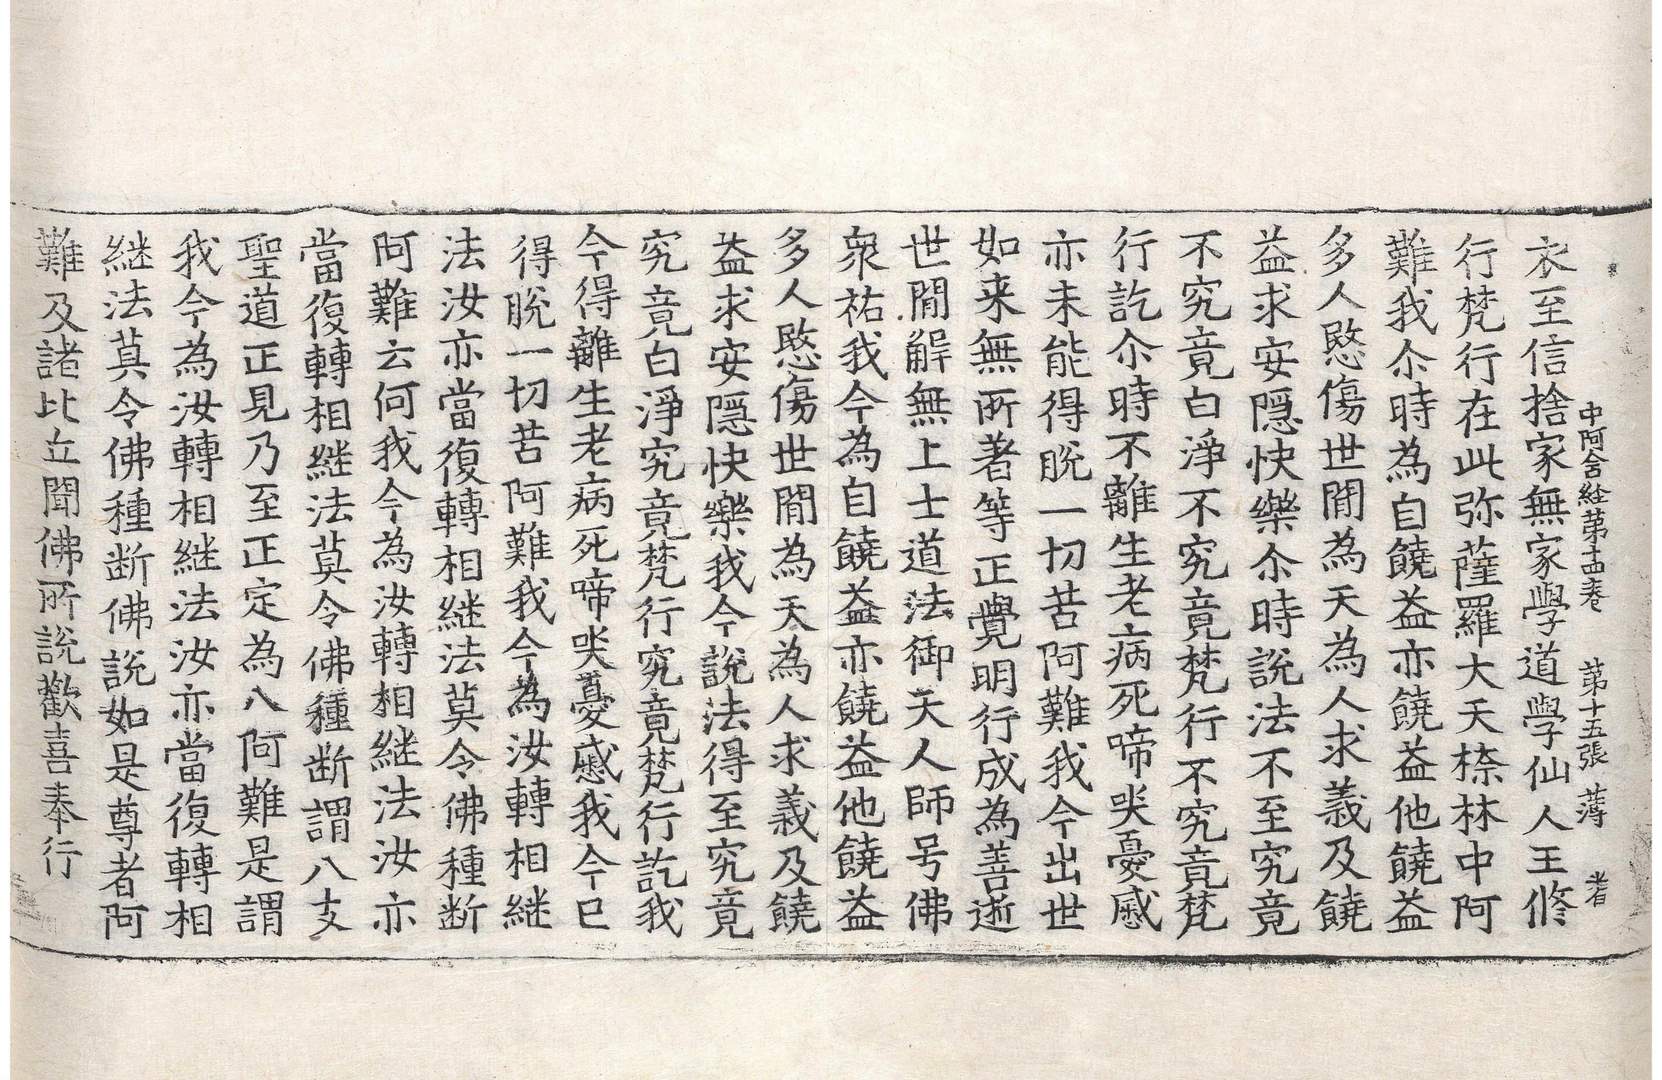 中阿含経第十四巻　第十五張　薄　者
衣至信捨家無家學道學仙人王修
行梵行在此弥薩羅大天㮈林中阿
難我尒時為自饒益亦饒益他饒益
多人愍傷世間為天為人求義及饒
益求安隠快樂尒時說法不至究竟
不究竟白淨不究竟梵行不究竟梵
行訖尒時不離生老病死啼𠯗憂慼
亦未能得脫一切苦阿難我今出世
如来無所著等正覺明行成為善逝
世間解無上士道法御天人師号佛
衆祐我今為自饒益亦饒益他饒益
多人愍傷世間為天為人求義及饒
益求安隠快樂我今說法得至究竟
究竟白淨究竟梵行究竟梵行訖我
今得離生老病死啼𠯗憂慼我今已
得脫一切苦阿難我今為汝轉相継
法汝亦當復轉相継法莫令佛種断
阿難云何我今為汝轉相継法汝亦
當復轉相継法莫令佛種断謂八支
聖道正見乃至正定為八阿難是謂
我今為汝轉相継法汝亦當復轉相
継法莫令佛種断佛說如是尊者阿
難及諸比丘聞佛所說歡喜奉行